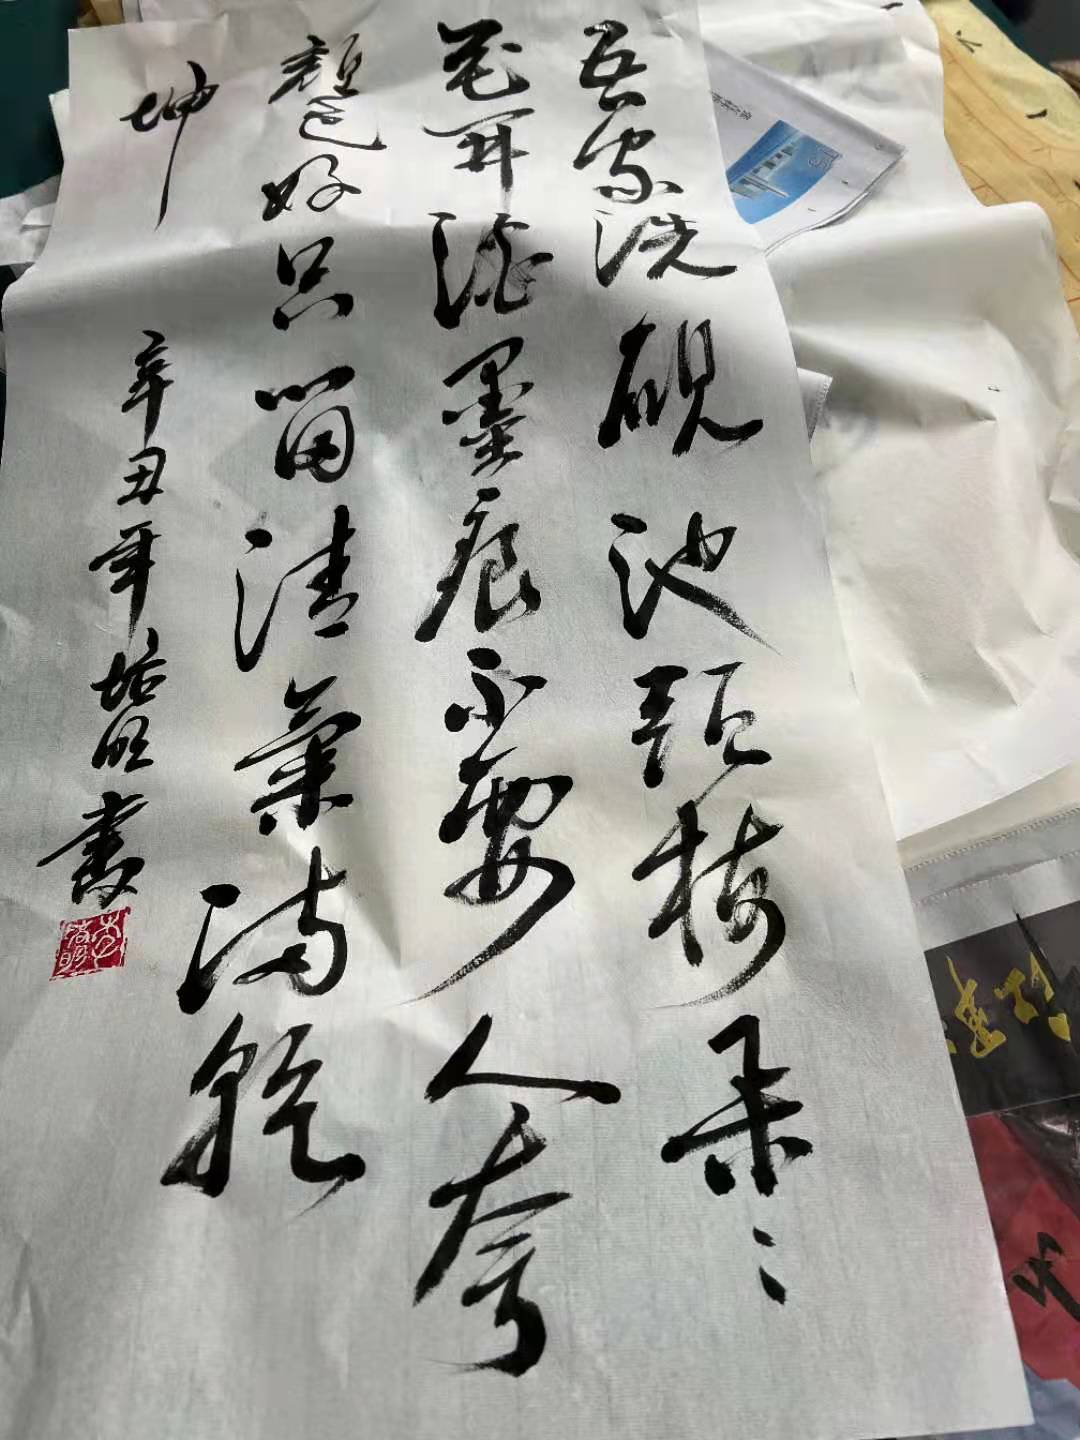 吾家洗砚池头树朵々
花开淡墨痕不要人夸
颜色好只留清气满乾
坤
辛丑年培旺书